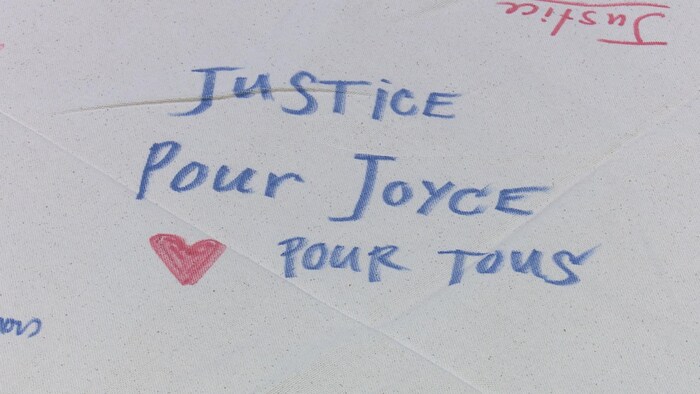 Justice
JUSTiCE
Pour JOYCE
POUR TOUS